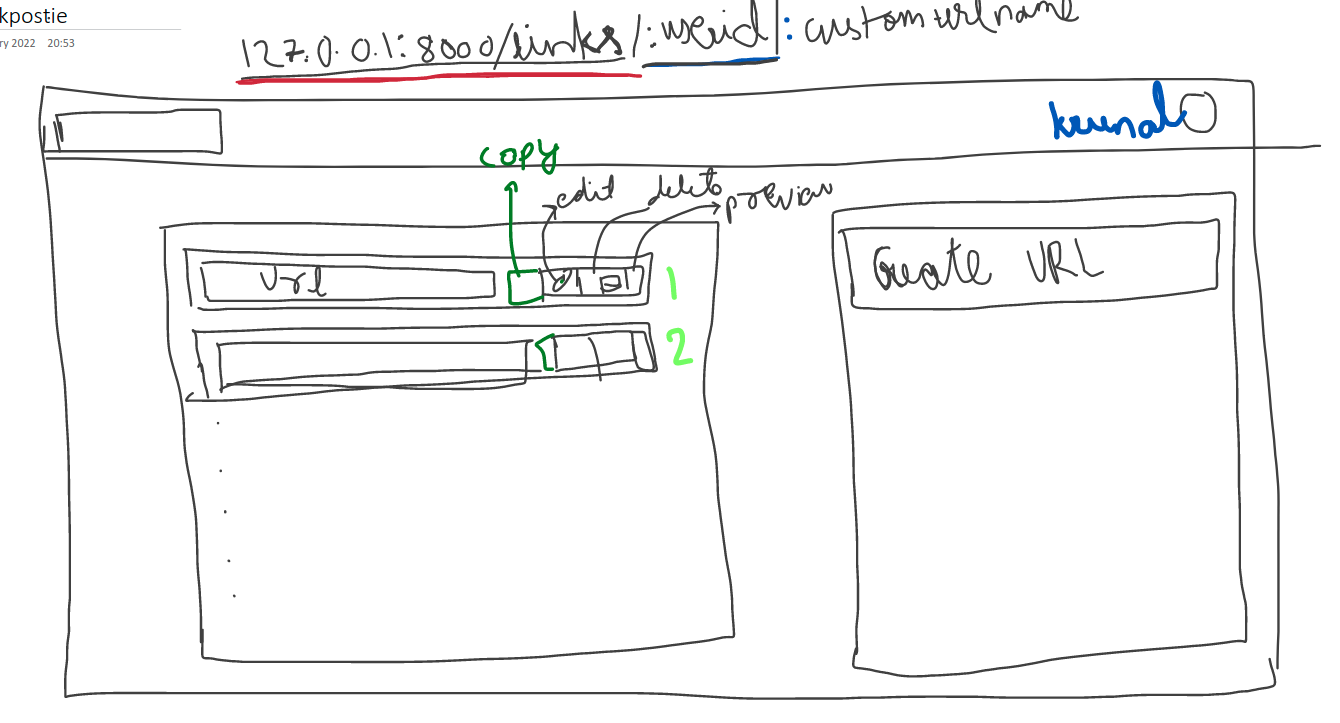 kpostie
ry 2022 20:53
127.0.0.1:8000/links/:userid/:customurlname
kunal
copy
edit delete preview
Url
1
Create URL
2